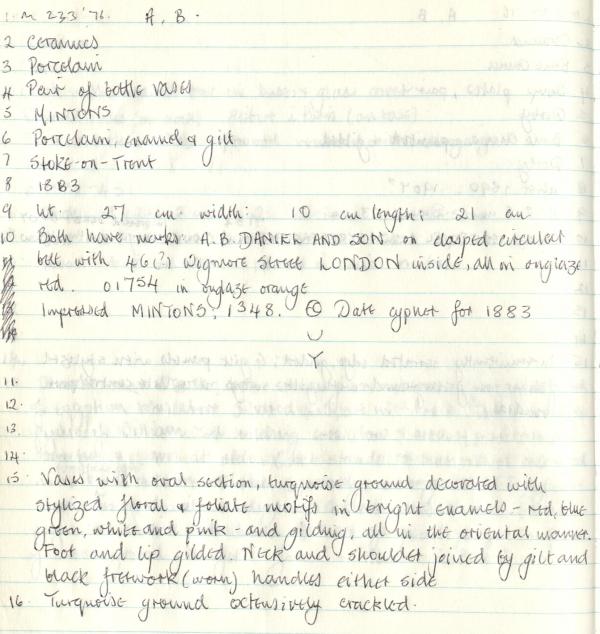 1. M 233 '76. A, B.
2 Ceramics
3 Porcelain
4 Pair of bottle vases
5 MINTONS
6 Porcelain, enamel & gilt
7 Stoke-on-Trent
8 1883
9 ht. 27 cm width: 10 cm length: 21 cm
10 Both have marks A.B. DANIELL AND SON on clasped circular
belt with 46(?) Wigmore Street LONDON inside, all in onglaze
red. 01754 in onglaze orange
Impressed MINTONS; 1348. Date cypher for 1883
11.
12.
13.
14.
15. Vases with oval section, turquoise ground decorated with
stylized floral & foliate motifs in bright enamels - red, blue
green, white and pink - and gilding, all in the oriental manner.
Foot and lip gilded. Neck and shoulder joined by gilt and
black fretwork (worn) handles either side
16. Turquoise ground extensively crackled.